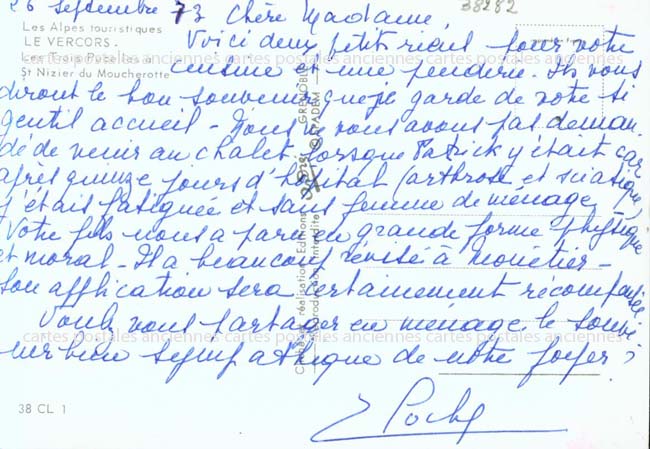 26 septembre 73 Chère Madame,
38282
Les Alpes touristiques
LE VERCORS.
Les Trois Pucelles à
St Nizier du Moucherotte
Voici deux petits riens pour votre
cuisine et une penderie. Ils vous
diront le bon souvenir que je garde de votre si
gentil accueil - Nous ne vous avons pas deman
dé de venir au chalet lorsque Patrick y était car
après quinze jours d'hôpital (arthrose et sciatique)
j'étais fatiguée et sans femme de ménage.
Votre fils nous a paru en grande forme physique
et moral - Il a beaucoup révisé à Monétier -
Son application sera certainement récompensée
Voulez vous partager en ménage le souve
nir bien sympathique de notre foyer ?
cartes postales anciennes cartes postales anciennes cartes postales anciennes
cartes postales anciennes cartes postales anciennes cartes postales anciennes
réalisation Editions
GRENOBLE
reproduction interdite
38 CL 1